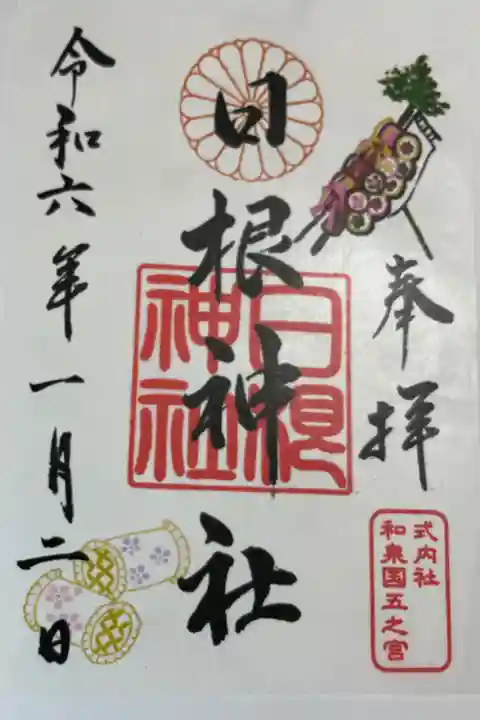 奉拝
式内社
和泉国五之宮
日根神社
日根神社
令和六年一月二日